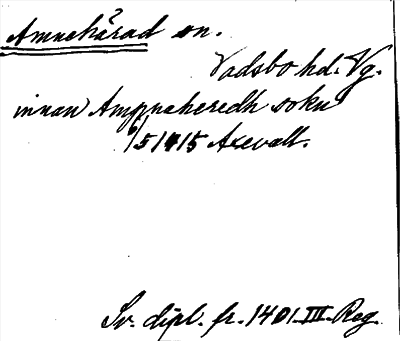 Amnehärad sn.
Vadsbo hd. Vg.
innan Ampnaheredh sokn
6/5 1415 Axevall.
Sv. dipl. fr. 1401 III Reg.